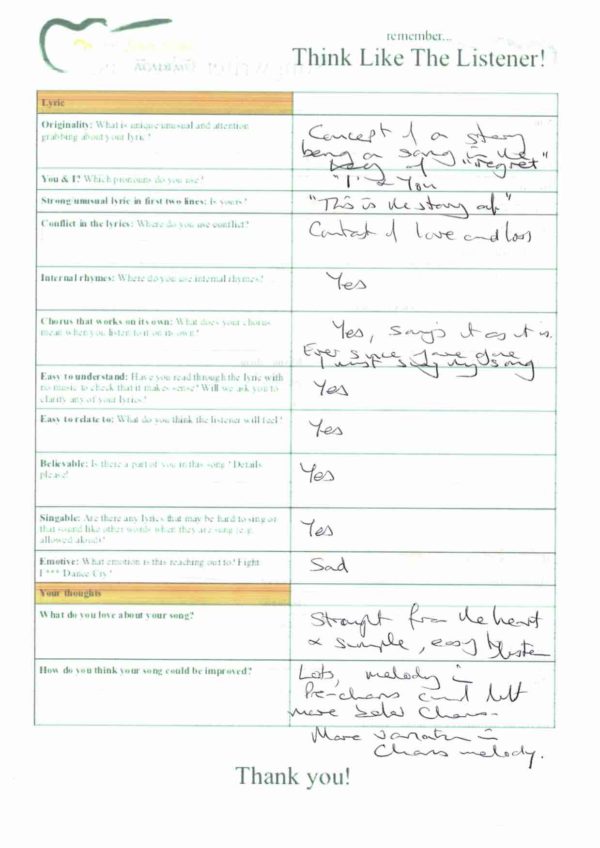 remember...
Think Like The Listener!
Lyric
Originality: What is unique unusual and attention
grabbing about your lyric?
Concept of a story
being a song in the
key of "regret"
You & I? Which pronouns do you use?
"I" & You
Strong unusual lyric in first two lines: Is yours?
"This is the story of"
Conflict in the lyrics: Where do you use conflict?
Contrast of love and loss
Internal rhymes: Where do you use internal rhymes?
Yes
Chorus that works on its own: What does your chorus
mean when you listen to it on its own?
Yes, says it as it is.
Ever since gone
I must sing my song
Easy to understand: Have you read through the lyric with
no music to check that it makes sense? Will we ask you to
clarify any of your lyrics?
Yes
Easy to relate to: What do you think the listener will feel?
Yes
Believable: Is there a part of you in this song? Details
please!
Yes
Singable: Are there any lyrics that may be hard to sing or
that sound like other words when they are sung (e.g.
allowed aloud)?
Yes
Emotive: What emotion is this reaching out to? Fight
F*** Dance Cry?
Sad
Your thoughts
What do you love about your song?
Straight from the heart
& simple, easy to listen
How do you think your song could be improved?
Lots, melody in
Pre-chorus could lift
more before Chorus.
More variation in
Chorus melody.
Thank you!